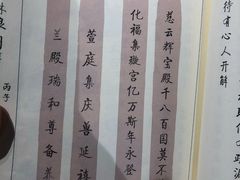 待有心人开解
慈云辉宝殿千八百国莫不
化福集璇宫亿万斯年永登
萱庭集庆喜延禧
兰殿瑞和尊备养
丙子